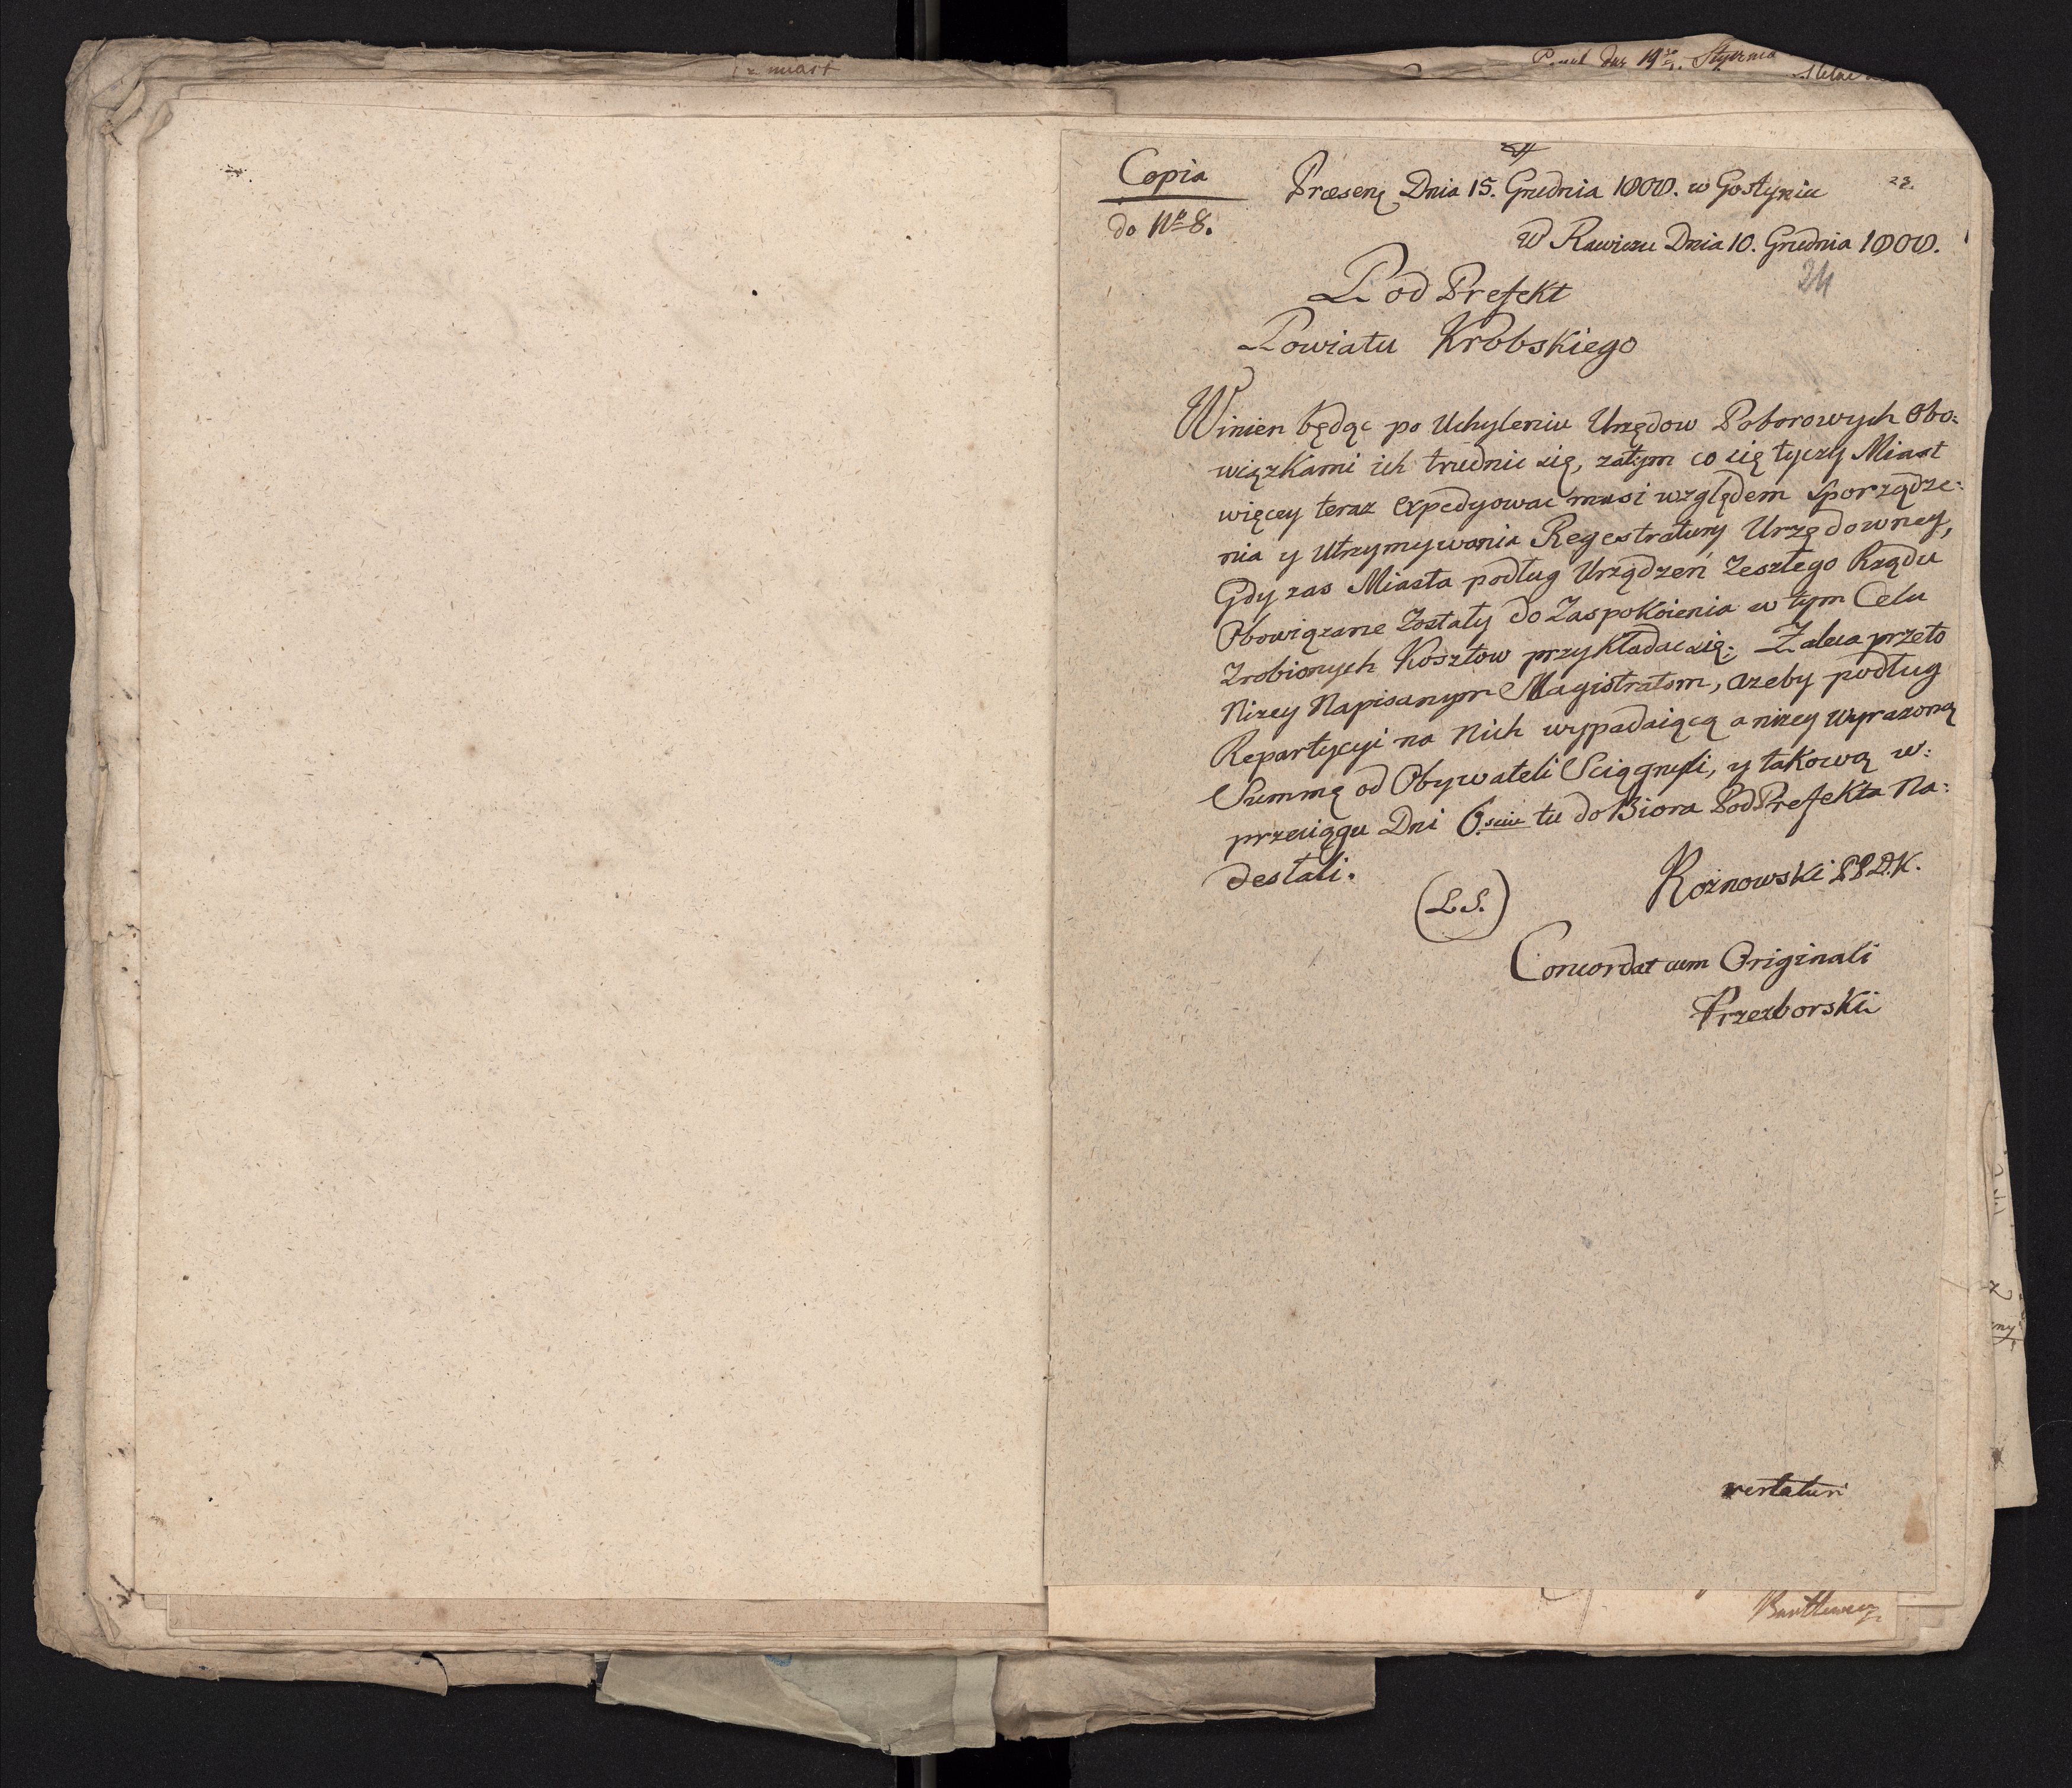 z miast
dnia 19. Stycznia
Copia
do No 8.
Præsent Dnia 15. Grudnia 1808. w Gostyniu
23.
W Rawiczu Dnia 10. Grudnia 1808.
24
Pod Prefekt
Powiatu Krobskiego
Winien będąc po Uchyleniu Urzędow Poborowych Obo:
wiązkami ich trudnic się, zatym co się tyczy Miast
więcey teraz expedyowac musi względem Sporządze:
nia y Utrzymywania Regestratury Urzędowney,
Gdy zas Miasta podług Urządzeń Zeszłego Rządu
Obowiązane Zostały do Zaspokoienia w tym Celu
Zrobionych Kosztow przykładac się; Zaleca przeto
Nizey Napisanym Magistratom, azeby podług
Repartycyi na Nich wypadaiącą a nizey wyrazoną
Summę od Obywateli Sciągnęli, y takową w:
przeciągu Dni 8.miu tu do Biora PodPrefekta Na:
destali.
(L.S.)
Roznowski P.P.D.K.
Concordat cum Originali
Przezborski
vertatur